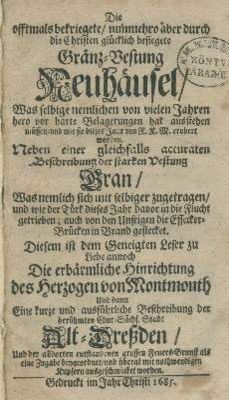 Die
offtmals bekriegete / nunmehro aber durch
die Christen glücklich besiegete
Gräntz-Vestung
Neuhäusel /
Was selbige nemlichen von vielen Jahren
hero vor harte Belagerungen hat ausstehen
müssen / und wie sie dieses Jahr von R. K. M. erobert
worden.
Neben einer gleichfalls accuraten
Beschreibung der starken Vestung
Gran /
Was nemlich sich mit selbiger zugetragen /
und wie der Türk dieses Jahr davor in die Flucht
getrieben / auch von den Unsrigen die Essecker-
Brücken in Brand gestecket.
Diesem ist dem Geneigten Leser zu
Liebe annoch
Die erbärmliche Hinrichtung
des Herzogen von Montmouth
Und dann
Eine kurze und ausführliche Beschreibung der
berühmten Chur-Sächs. Stadt
Alt-Dreßden /
Und der alldorten entstandenen grossen Feuers-Brunst als
eine Zugabe beygeordnet / und überal mit nothwendigen
Kupfern ausgeschmücket worden.
Gedruckt im Jahr Christi 1685.